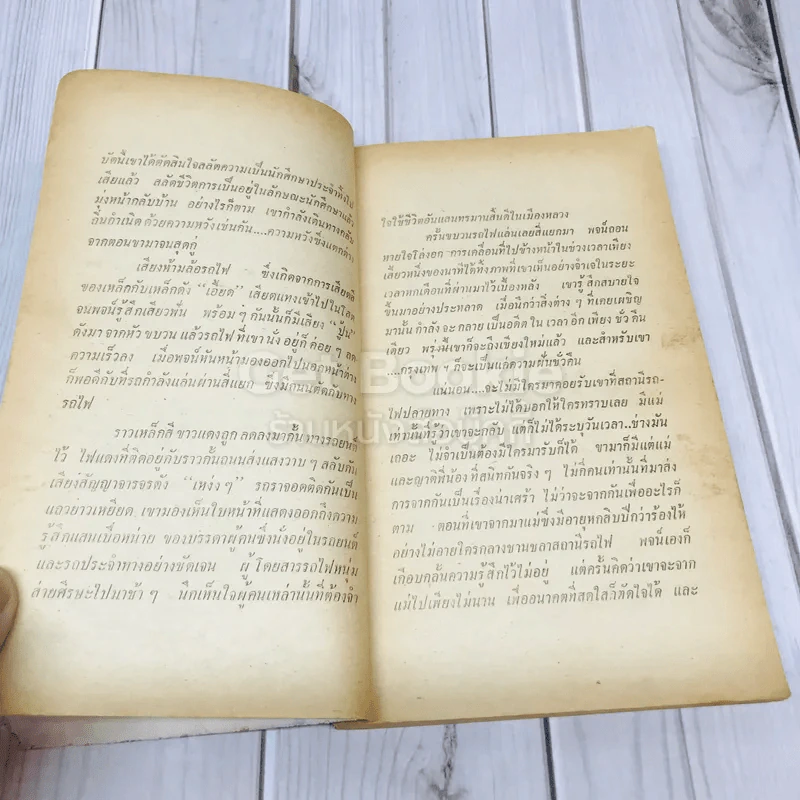 บัดนี้เขาได้ตัดสินใจสลัดความเป็นนักศึกษาประจำทิ้งไป
เสียแล้ว สลัดชีวิตการเป็นอยู่ในลักษณะนักศึกษาแล้ว
มุ่งหน้ากลับบ้าน อย่างไรก็ตาม เขากำลังเดินทางกลับ
ถิ่นกำเนิด ด้วยความหวังเช่นกัน....ความหวังซึ่งแตกต่าง
จากตอนขามาจนสุดกู่
เสียงห้ามล้อรถไฟ ซึ่งเกิดจากการเสียดสี
ของเหล็กกับเหล็กดัง “เอี๊ยด” เสียดแทงเข้าไปในโสต
จนพจน์รู้สึกเสียวฟัน พร้อม ๆ กันนั้นก็มีเสียง “ปู๊น”
ดังมา จาก หัว ขบวน แล้วรถไฟ ที่เขา นั่ง อยู่ ก็ ค่อย ๆ ลด
ความเร็วลง เมื่อพจน์หันหน้ามองออกไปนอกหน้าต่าง
ก็พอดีกับที่รถกำลังแล่นผ่านสี่แยก ซึ่งมีถนนตัดกับทาง
รถไฟ
ราวเหล็กสี ขาวแดงถูก ลดลงมากั้นทางรถยนต์
ไว้ ไฟแดงที่ติดอยู่กับราวกั้นถนนส่งแสงวาบ ๆ สลับกับ
เสียงสัญญาจารจรดัง “เหง่ง ๆ” รถราจอดติดกันเป็น
แถวยาวเหยียด เขามองเห็นใบหน้าที่แสดงออกถึงความ
รู้สึกแสนเบื่อหน่าย ของบรรดาผู้คนซึ่งนั่งอยู่ในรถยนต์
และรถประจำทางอย่างชัดเจน ผู้โดยสารรถไฟหนุ่ม
ส่ายศีรษะไปมาช้า ๆ นึกเห็นใจผู้คนเหล่านั้นที่ต้องจำ
ใจใช้ชีวิตอันแสนทรมานสิ้นดีในเมืองหลวง
ครั้นขบวนรถไฟแล่นเลยสี่แยกมา พจน์ถอน
หายใจโล่งอก การเคลื่อนที่ไปข้างหน้าในช่วงเวลาเพียง
เสี้ยวหนึ่งของนาทีได้ทิ้งภาพที่เขาเห็นอย่างจำเจในระยะ
เวลาหกเดือนที่ผ่านมาไว้เบื้องหลัง เขารู้สึกสบายใจ
ขึ้นมาอย่างประหลาด เมื่อนึกว่าสิ่งต่าง ๆ ที่เคยเผชิญ
มานั้น กำลัง จะ กลาย เป็นอดีต ใน เวลา อีก เพียง ชั่ว คืน
เดียว พรุ่งนี้เขาก็จะถึงเชียงใหม่แล้ว และสำหรับเขา
....กรุงเทพ ฯ ก็จะเป็นแค่ความฝันชั่วคืน
แน่นอน....จะไม่มีใครมาคอยรับเขาที่สถานีรถ-
ไฟปลายทาง เพราะไม่ได้บอกให้ใครทราบเลย มีแม่
เท่านั้นที่รู้ว่าเขาจะกลับ แต่ก็ไม่ได้ระบุวันเวลา..ช่างมัน
เถอะ ไม่จำเป็นต้องมีใครมารับก็ได้ ขามาก็มีแต่แม่
และญาติพี่น้อง ที่สนิทกันจริง ๆ ไม่กี่คนเท่านั้นที่มาส่ง
การจากกันเป็นเรื่องน่าเศร้า ไม่ว่าจะจากกันเพื่ออะไรก็
ตาม ตอนที่เขาจากมาแม่ซึ่งมีอายุหกสิบปีกว่าร้องไห้
อย่างไม่อายใครกลางชานชลาสถานีรถไฟ พจน์เองก็
เกือบกลั้นความรู้สึกไว้ไม่อยู่ แต่ครั้นคิดว่าเขาจะจาก
แม่ไปเพียงไม่นาน เพื่ออนาคตที่สดใสก็หักใจได้ และ